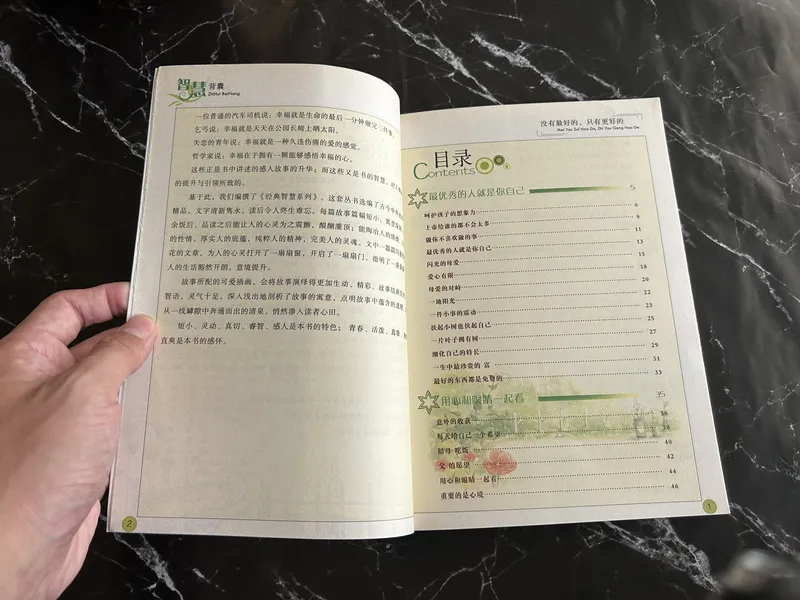 智慧背囊
ZhiHui BeiNang
一位普通的汽车司机说：幸福就是生命的最后一分钟做完三件事。
乞丐说：幸福就是天天在公园长椅上晒太阳。
失恋的青年说：幸福就是一种久违伤痛的爱的感觉。
哲学家说：幸福在于拥有一颗能够感悟幸福的心。
这些正是书中讲述的感人故事的升华；而这些又是书的智慧，
的提升与引领所致的。
基于此，我们编撰了《经典智慧系列》。这套丛书选编了古今中外
精品，文字清新隽永，读后令人终生难忘。每篇故事篇幅短小，
余饭后，品读之后能让人的心灵为之震颤，醍醐灌顶；能陶冶人的情操，
的性情，厚实人的底蕴，纯粹人的精神，完美人的灵魂。文中一篇篇
花的文章，为人的心灵打开了一扇扇窗，开启了一扇扇门，指明了一
人的生活豁然开朗，意境提升。
故事所配的可爱插画，会将故事演绎得更加生动、精彩。故事结束
智语，灵气十足，深入浅出地剖析了故事的寓意，点明故事中蕴含的道理
从一线罅隙中奔涌而出的清泉，悄然渗入读者心田。
短小、灵动、真切、睿智、感人是本书的特色；青春、活泼、真挚、
直爽是本书的感怀。
2
没有最好的，只有更好的
Mei You Zui Hao De, Zhi You Geng Hao De
目录
Contents
最优秀的人就是你自己 5
呵护孩子的想象力 6
上帝给谁的都不会太多 9
做你不喜欢做的事 11
最优秀的人就是你自己 13
闪光的母爱 15
爱心有限 18
母爱的对峙 20
一地阳光 22
一件小事的震动 23
扶起小树也扶起自己 25
一片叶子拥有树 27
细化自己的特长 29
一生中最珍贵的 富 31
最好的东西都是免费的 33
用心和眼睛一起看 35
意外的收获 36
每天给自己一个希望 38
陪母 吃饭 40
父 的愿望 42
用心和眼睛一起看 44
重要的是心境 46
1